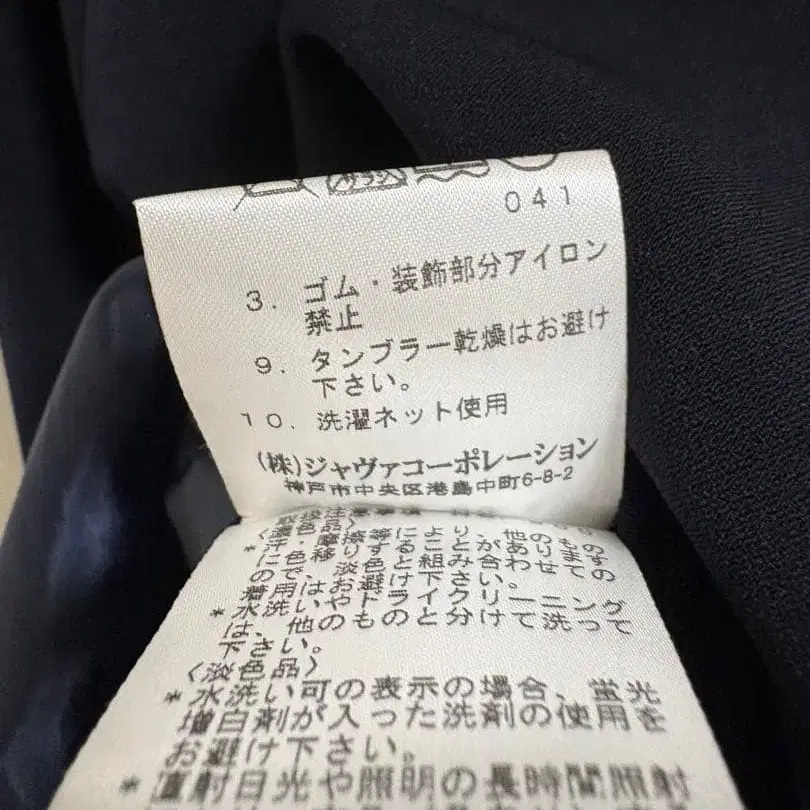 041
3. ゴム・装飾部分アイロン
禁止
9. タンブラー乾燥はお避け
下さい。
10. 洗濯ネット使用
(株)ジャヴァコーポレーション
神戸市中央区港島中町6-8-2
*汗・摩擦等により、他のもの
に色移りすることがあります
ので、淡色と組み合わせての
着用はお避け下さい。
*水洗いやドライクリーニング
は、他のものと分けて洗って
下さい。
〈淡色品〉
*水洗い可の表示の場合、蛍光
増白剤が入った洗剤の使用を
お避け下さい。
*直射日光や照明の長時間照射